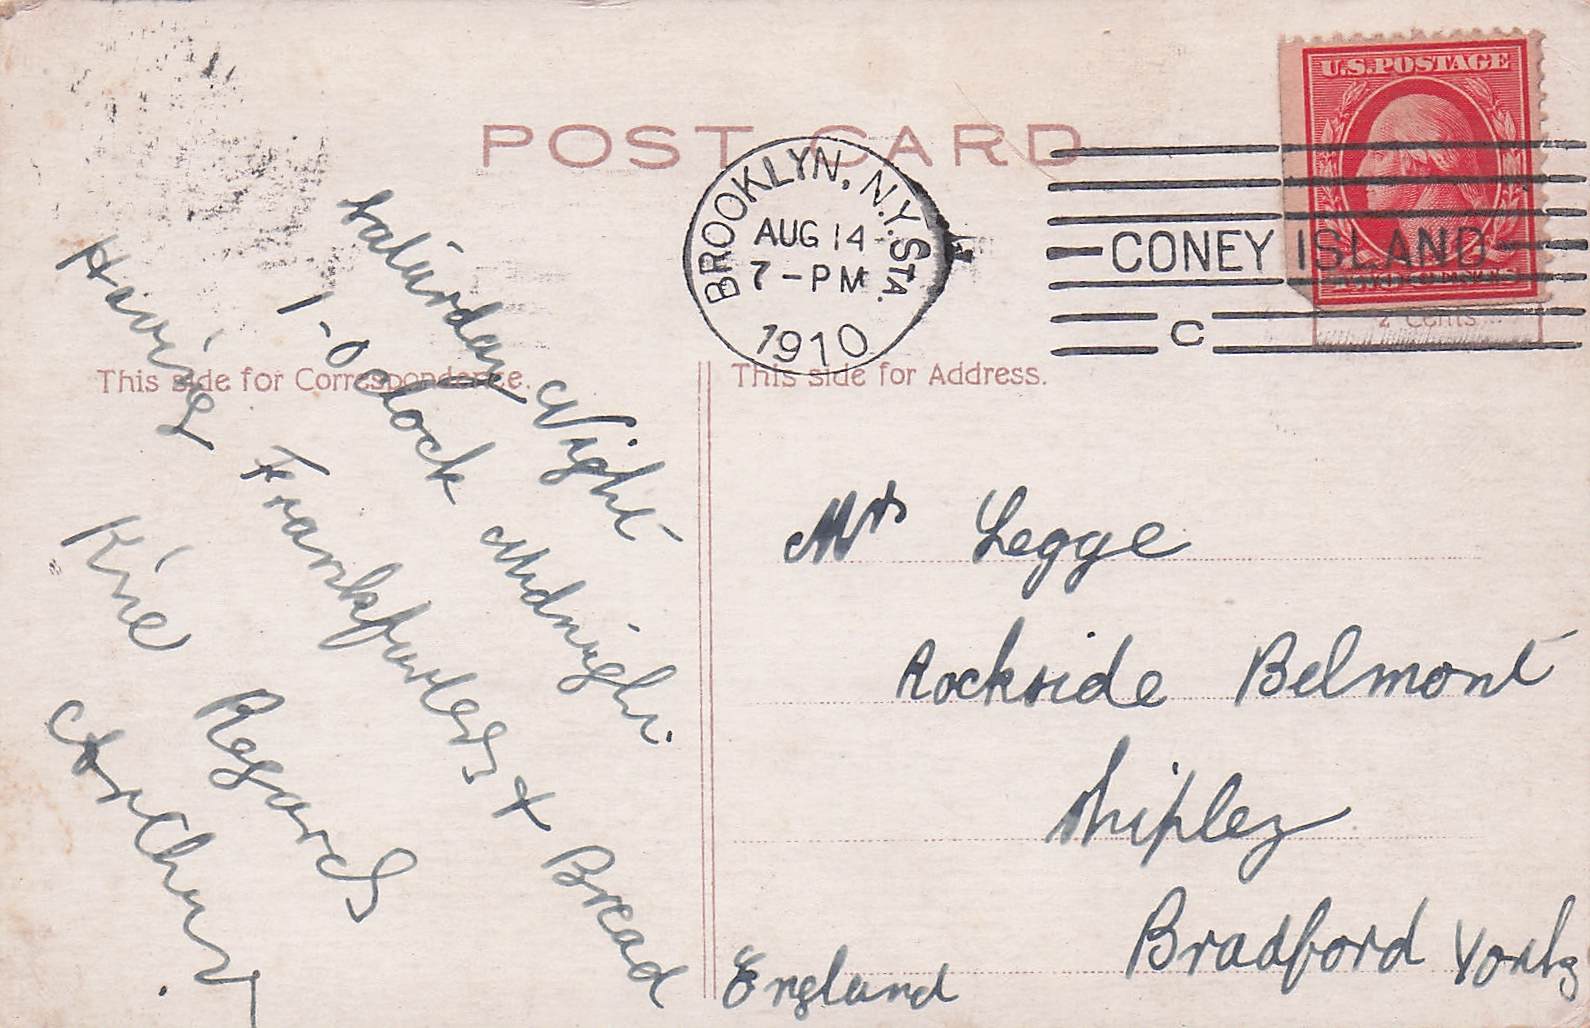 POST CARD
U.S. POSTAGE
BROOKLYN, N.Y. STA.
AUG 14
7-PM
1910
CONEY ISLAND
C
2 Cents
This side for Correspondence.
This side for Address.
Saturday Night
1-Oclock Midnight.
Having Frankfurters + Bread
Kine Regards
Mrs Legge
Rockside Belmont
Shipley
Bradford Yorks
England